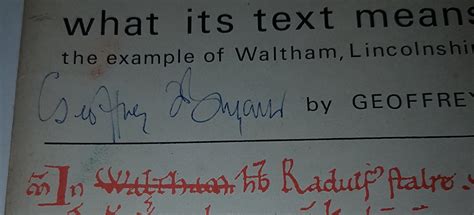 what its text means
the example of Waltham, Lincolnshi
Geoffrey Bryant by GEOFFREY
In Waltham hb Radulf stalre